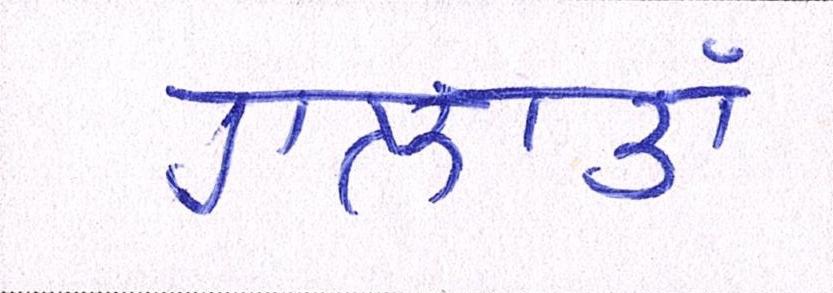 ਹਾਲਾਤਾਂ